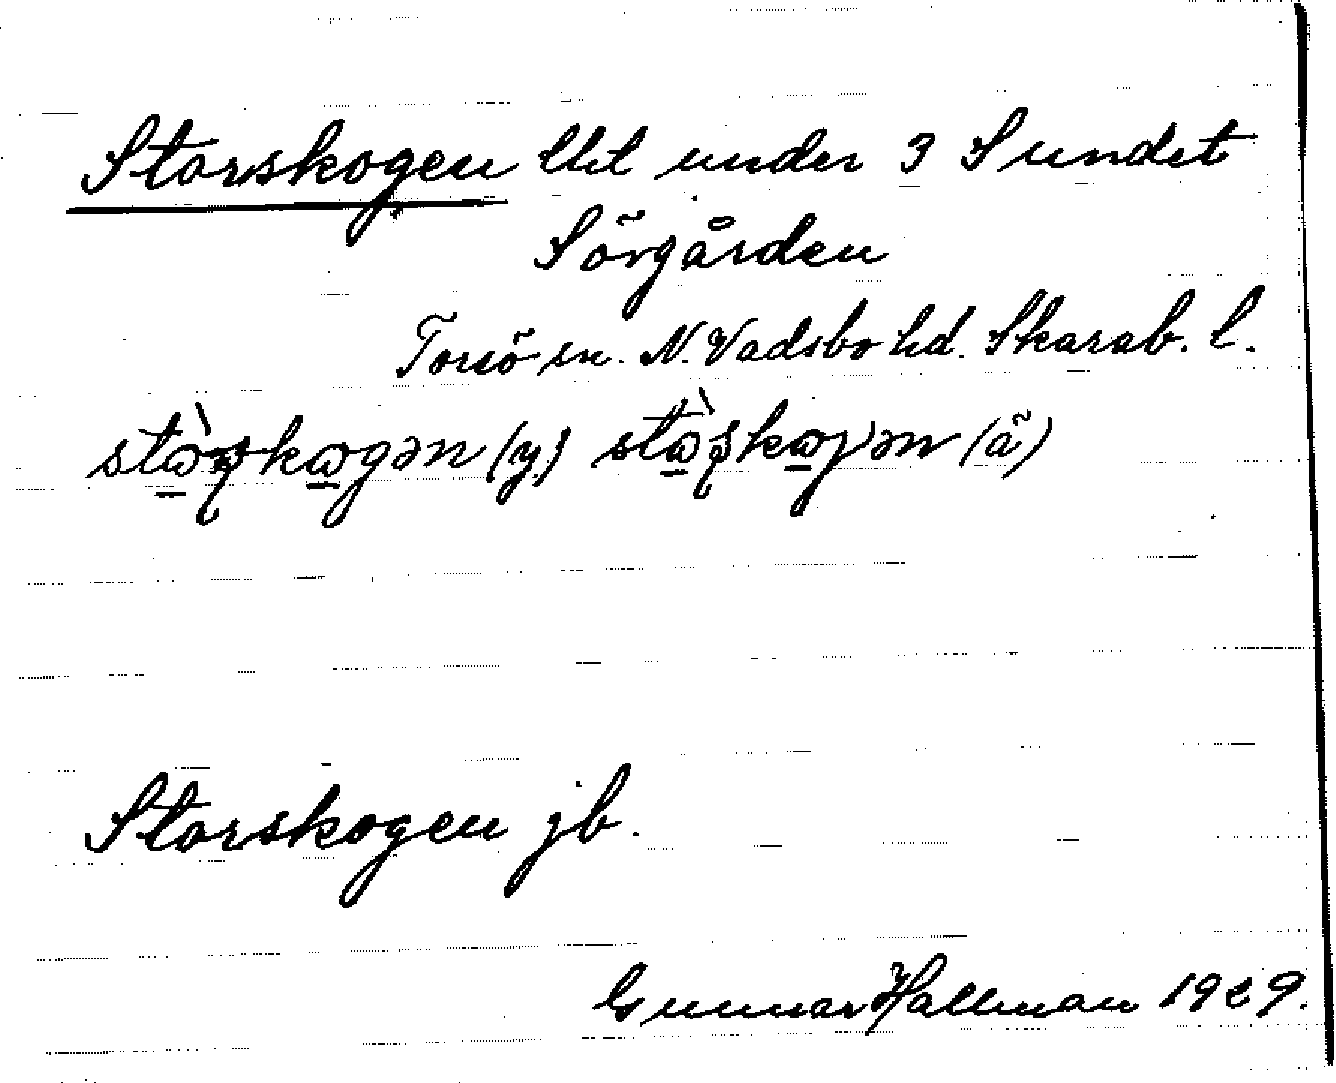 Storskogen lht under 3 Sundet
Sörgården
Torsö sn. N. Vadsbo hd. Skarab. l.
(y) (ä)
Storskogen jb.
Gunnar Hallman 1929.